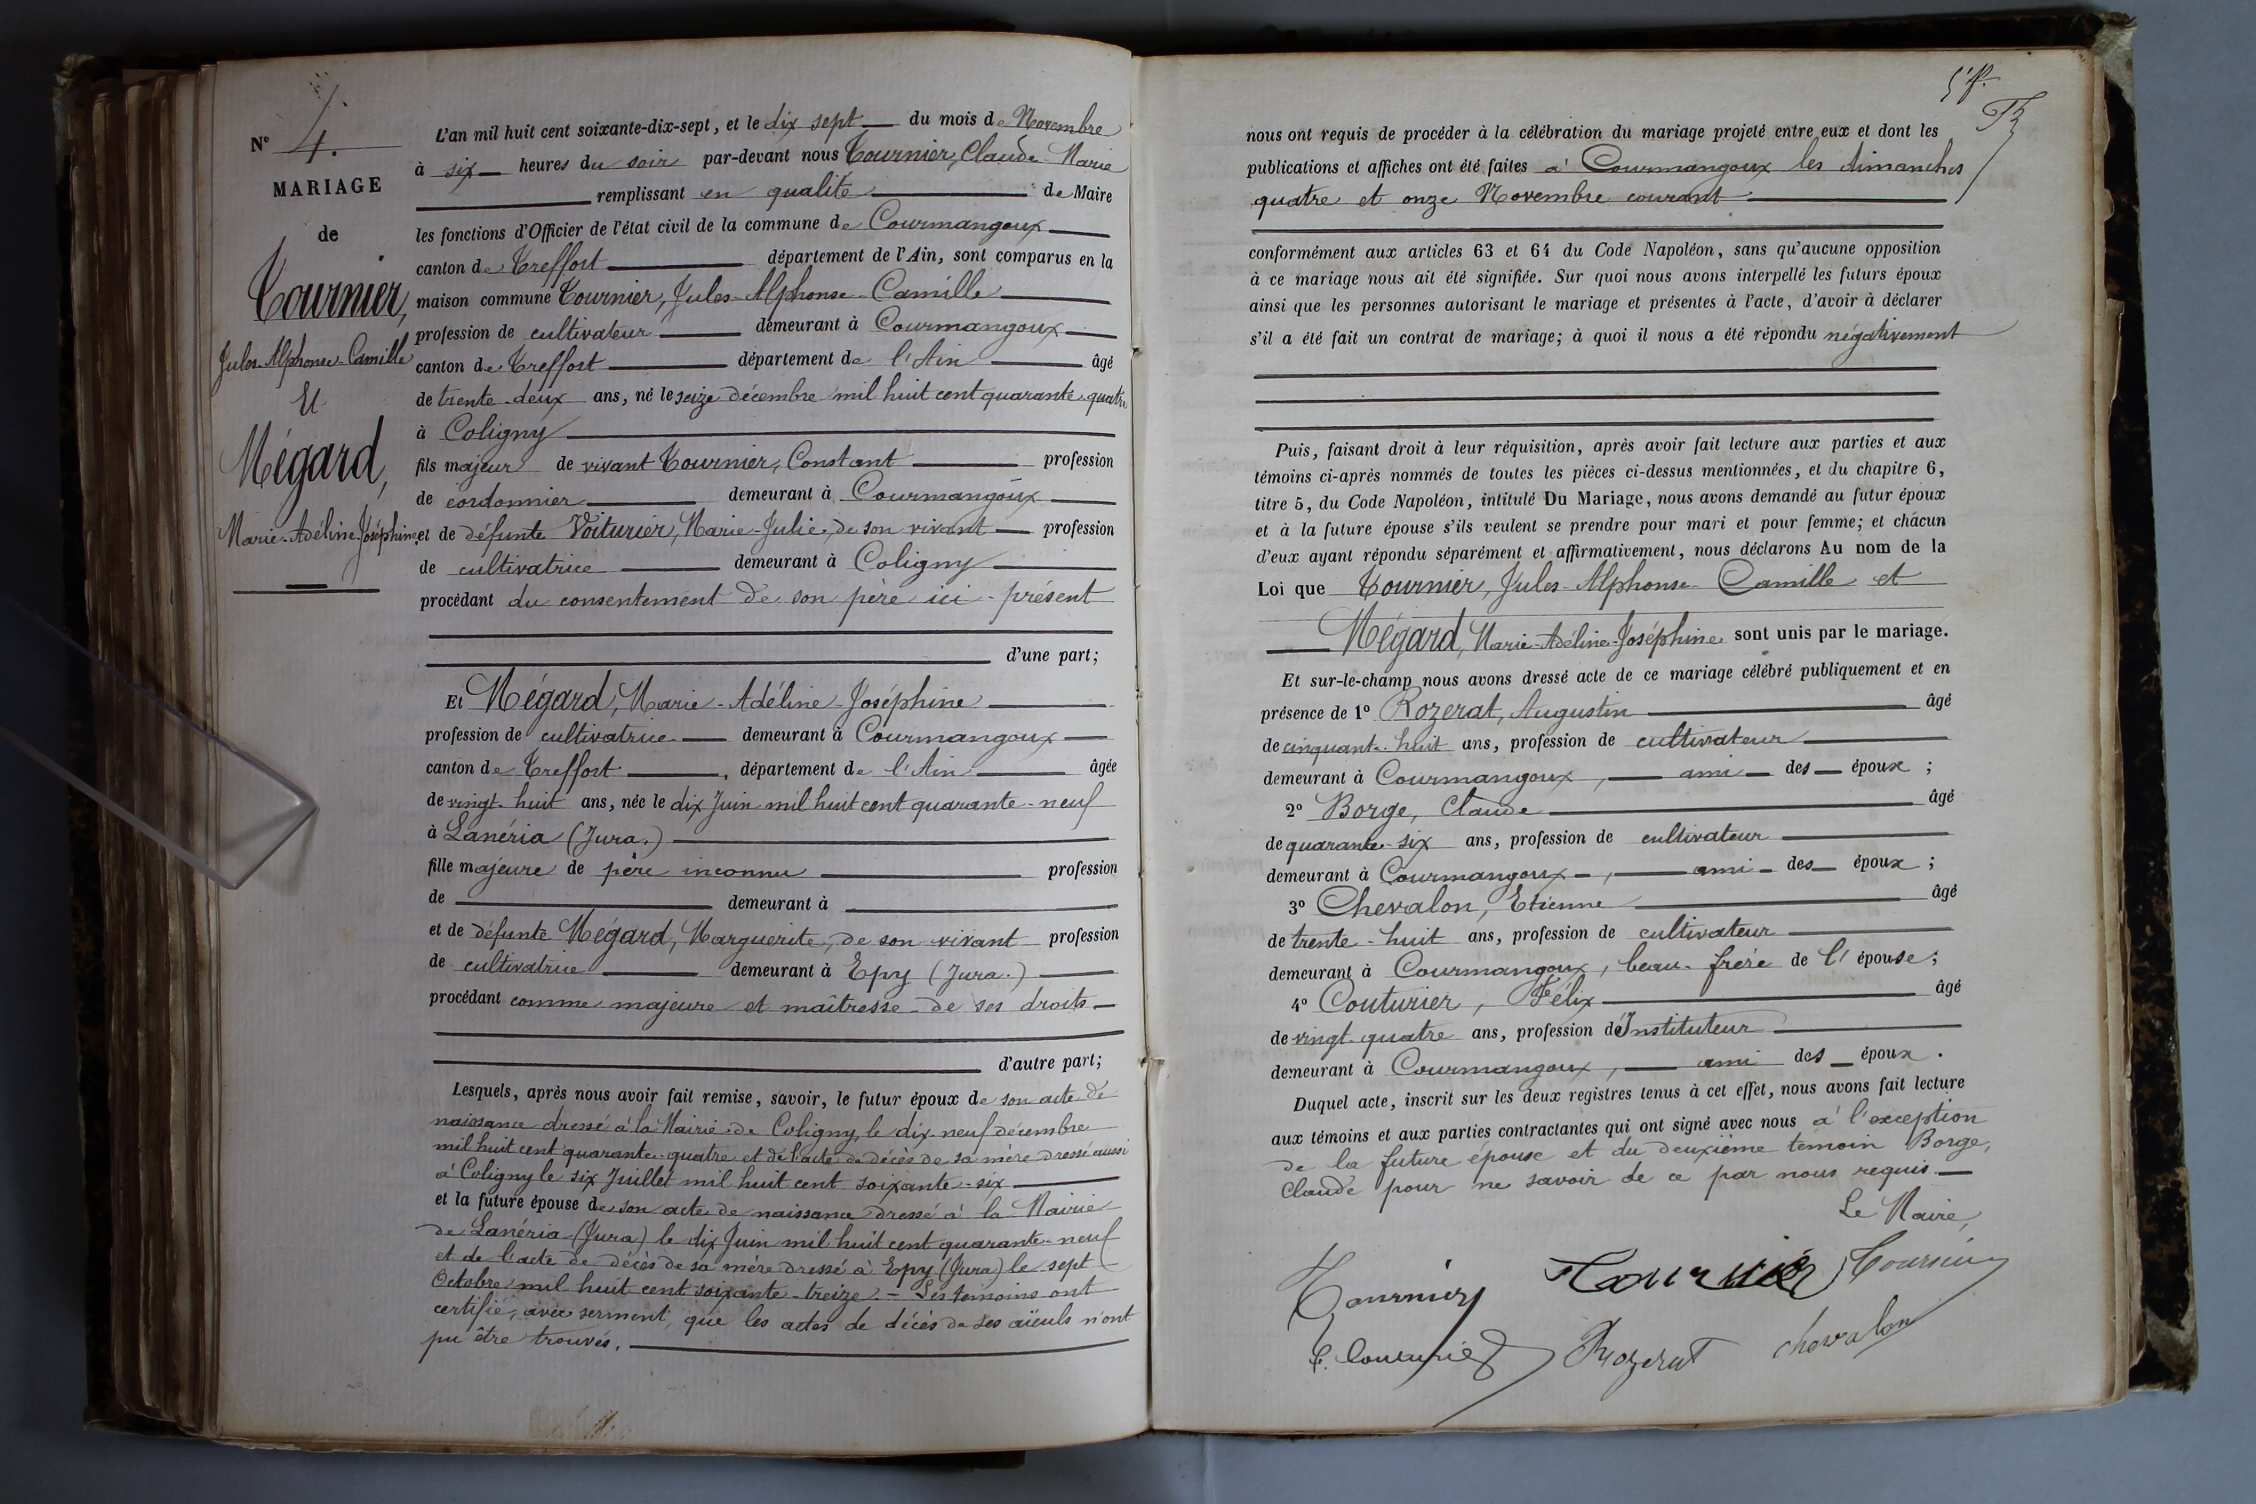 N° 4.
MARIAGE
de
Tournier,
Jules-Alphonse-Camille
Et
Mégard,
Marie-Adéline-Joséphine
L'an mil huit cent soixante-dix-sept, et le dix sept du mois de Novembre
à six heures du soir par-devant nous Tournier, Claude-Marie
remplissant en qualité de Maire
les fonctions d'Officier de l'état civil de la commune de Courmangoux
canton de Treffort département de l'Ain, sont comparus en la
maison commune Tournier, Jules-Alphonse-Camille
profession de cultivateur demeurant à Courmangoux
canton de Treffort département de l'Ain âgé
de trente-deux ans, né le seize décembre mil huit cent quarante-quatre
à Coligny
fils majeur de vivant Tournier, Constant profession
de cordonnier demeurant à Courmangoux
et de défunte Voiturier, Marie-Julie, de son vivant profession
de cultivatrice demeurant à Coligny
procédant du consentement de son père ici-présent
d'une part;
Et Mégard, Marie-Adéline-Joséphine
profession de cultivatrice demeurant à Courmangoux
canton de Treffort, département de l'Ain âgée
de vingt-huit ans, née le dix Juin mil huit cent quarante-neuf
à Lanéria (Jura.)
fille majeure de père inconnu profession
de demeurant à
et de défunte Mégard, Marguerite, de son vivant profession
de cultivatrice demeurant à Epy (Jura.)
procédant comme majeure et maîtresse de ses droits
d'autre part;
Lesquels, après nous avoir fait remise, savoir, le futur époux de son acte de
naissance dressé à la Mairie de Coligny, le dix-neuf décembre
mil huit cent quarante-quatre et de l'acte de décès de sa mère dressé aussi
à Coligny le six Juillet mil huit cent soixante-six
et la future épouse de son acte de naissance dressé à la Mairie
de Lanéria (Jura) le dix Juin mil huit cent quarante-neuf
et de l'acte de décès de sa mère dressé à Epy (Jura) le sept
Octobre mil huit cent soixante-treize. - Les témoins ont
certifié, avec serment, que les actes de décès de ses aïeuls n'ont
pu être trouvés.
nous ont requis de procéder à la célébration du mariage projeté entre eux et dont les
publications et affiches ont été faites à Courmangoux les dimanches
quatre et onze Novembre courant
conformément aux articles 63 et 64 du Code Napoléon, sans qu'aucune opposition
à ce mariage nous ait été signifiée. Sur quoi nous avons interpellé les futurs époux
ainsi que les personnes autorisant le mariage et présentes à l'acte, d'avoir à déclarer
s'il a été fait un contrat de mariage; à quoi il nous a été répondu négativement
Puis, faisant droit à leur réquisition, après avoir fait lecture aux parties et aux
témoins ci-après nommés de toutes les pièces ci-dessus mentionnées, et du chapitre 6,
titre 5, du Code Napoléon, intitulé Du Mariage, nous avons demandé au futur époux
et à la future épouse s'ils veulent se prendre pour mari et pour femme; et chacun
d'eux ayant répondu séparément et affirmativement, nous déclarons Au nom de la
Loi que Tournier, Jules-Alphonse-Camille et
Mégard, Marie-Adéline-Joséphine sont unis par le mariage.
Et sur-le-champ nous avons dressé acte de ce mariage célébré publiquement et en
présence de 1° Rozerat, Augustin âgé
de cinquante-huit ans, profession de cultivateur
demeurant à Courmangoux, ami des époux;
2° Borge, Claude âgé
de quarante-six ans, profession de cultivateur
demeurant à Courmangoux, ami des époux;
3° Chevalon, Etienne âgé
de trente-huit ans, profession de cultivateur
demeurant à Courmangoux, beau-frère de l'épouse;
4° Couturier, Félix âgé
de vingt-quatre ans, profession d'Instituteur
demeurant à Courmangoux, ami des époux.
Duquel acte, inscrit sur les deux registres tenus à cet effet, nous avons fait lecture
aux témoins et aux parties contractantes qui ont signé avec nous à l'exception
de la future épouse et du deuxième témoin Borge,
Claude pour ne savoir de ce par nous requis.
Le Maire,
Tournier Tournier Tournier
F. Couturier Rozerat chevalon